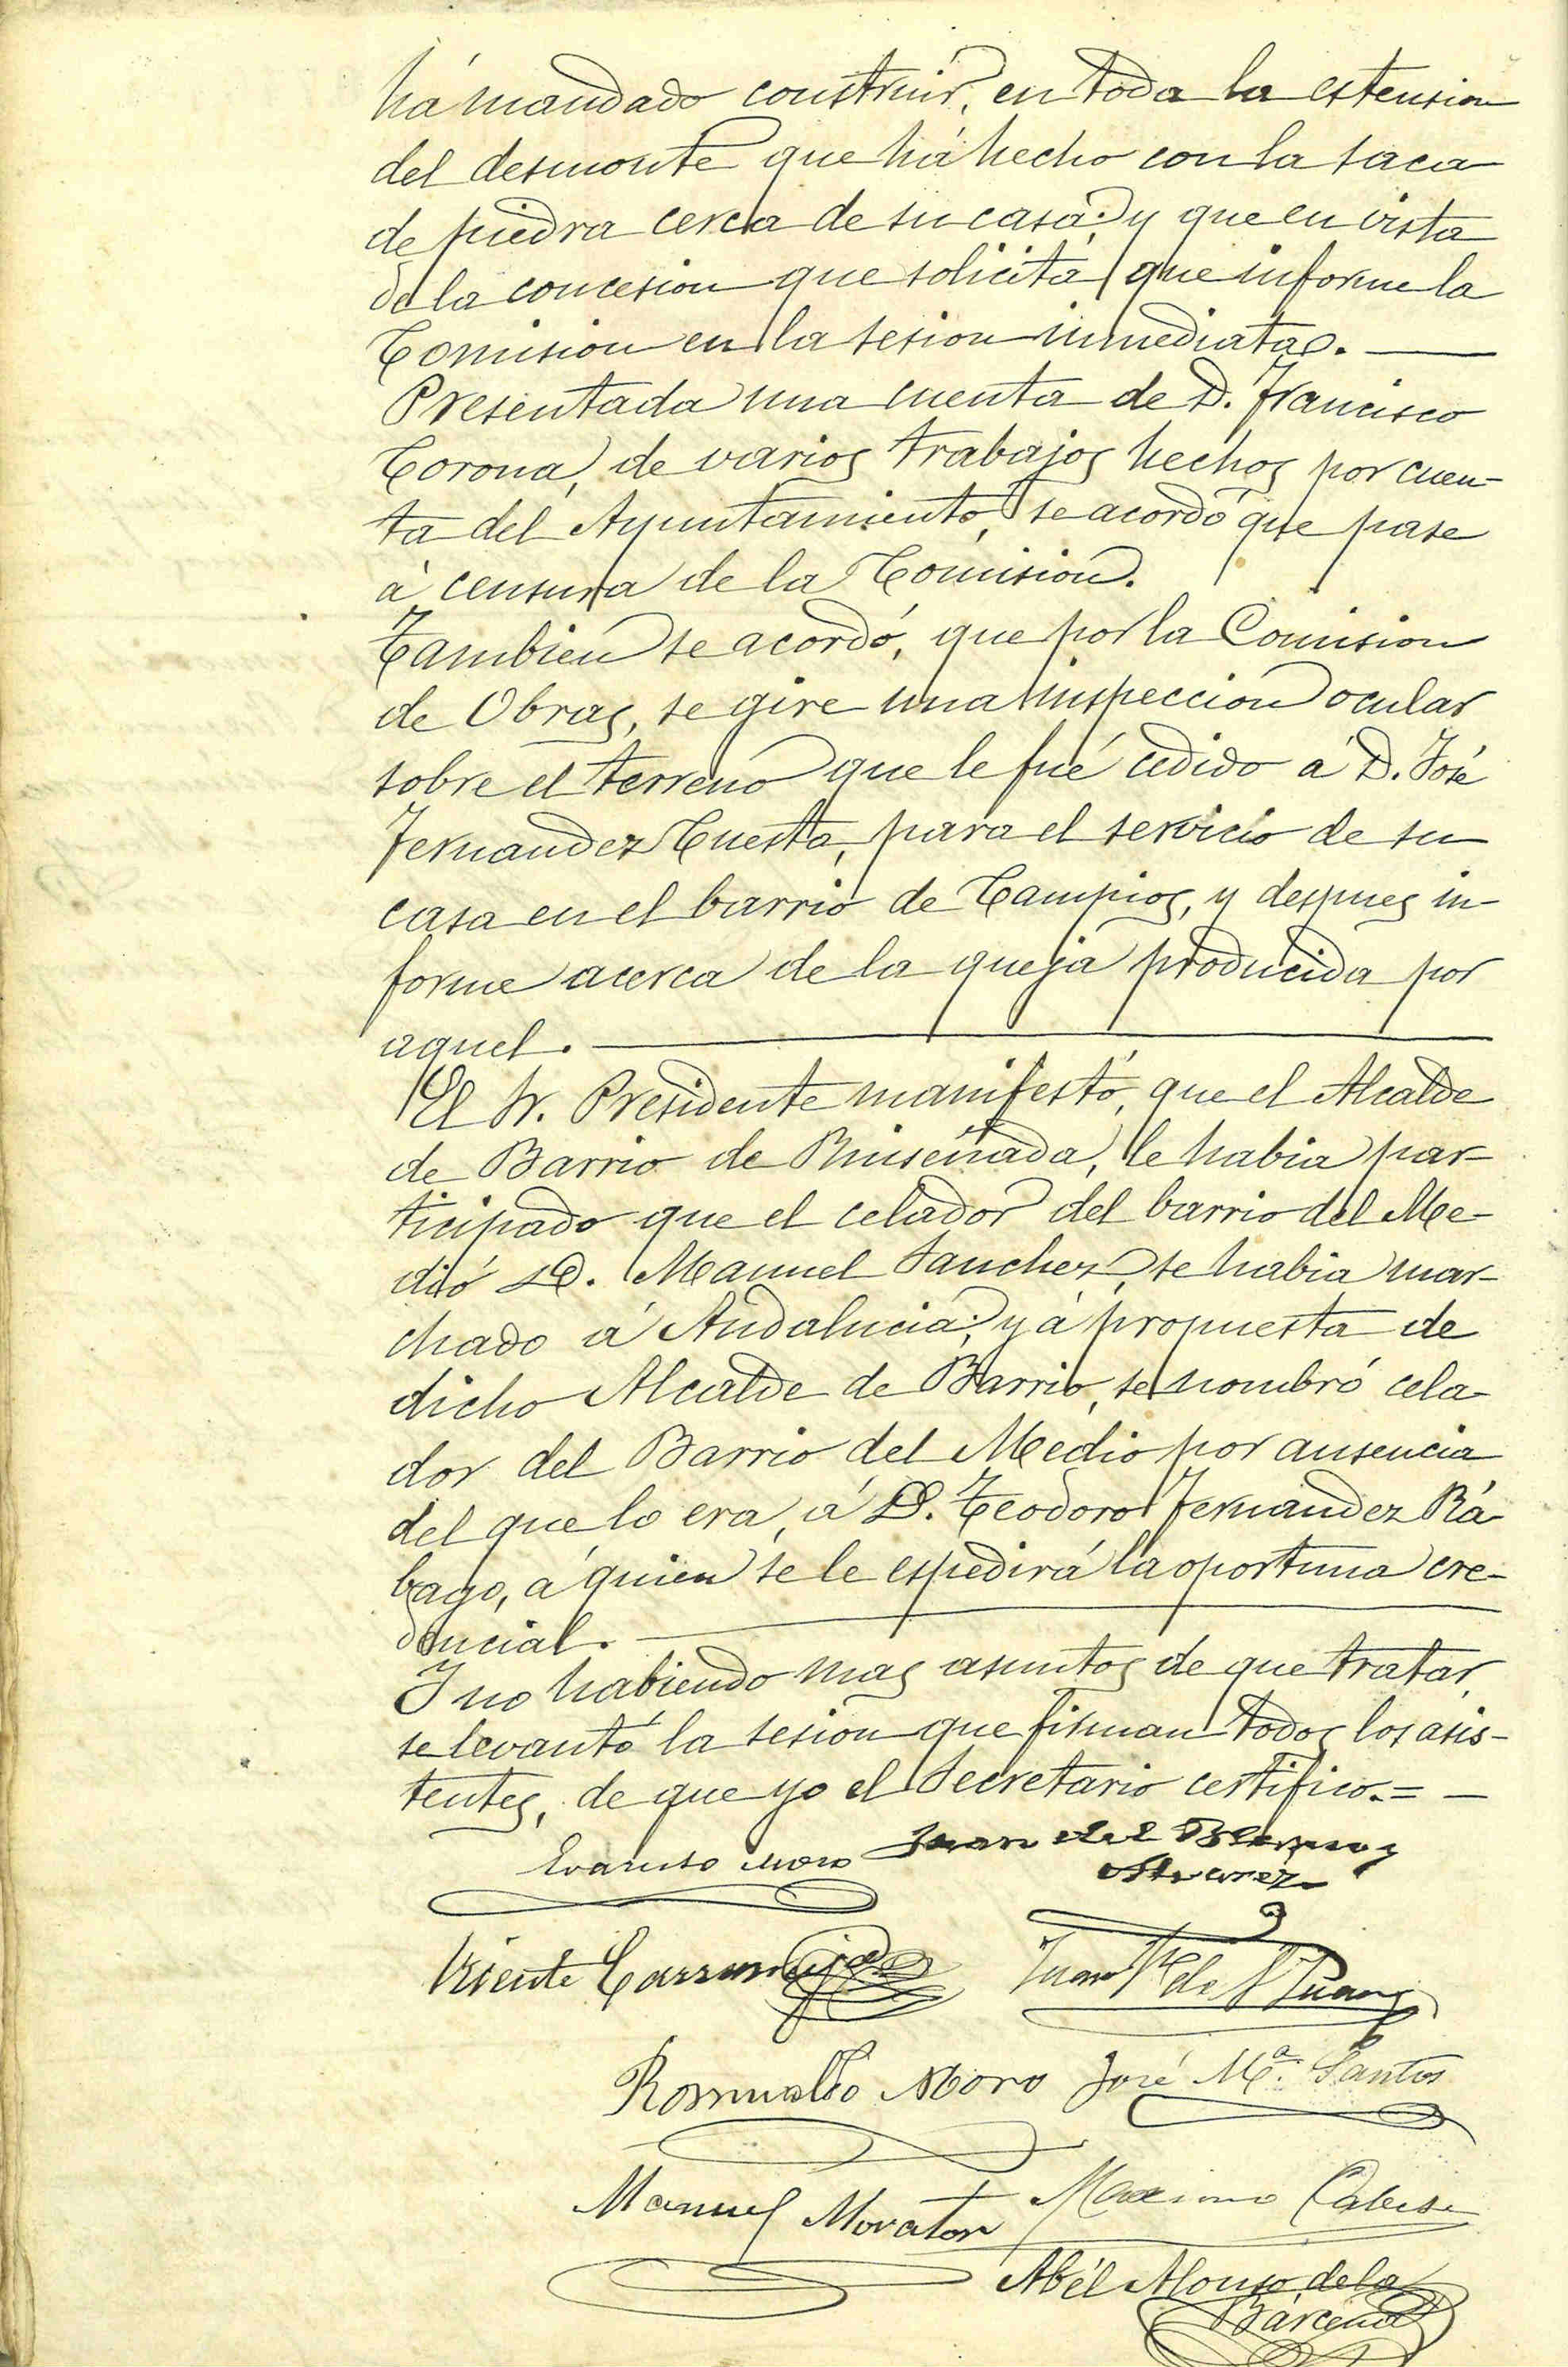 há mandado construir, en toda la estension
del desmonte que há hecho con la saca
de piedra cerca de su casa; y que en vista
de la concesion que solicita, que informe la
Comision en la sesion inmediata. —
Presentada una cuenta de D. Francisco
Corona, de varios trabajos hechos por cuen-
ta del Ayuntamiento, se acordó que pase
á censura de la Comision.
Tambien se acordó, que por la Comision
de Obras, se gire una inspeccion ocular
sobre el terreno que le fué cedido á D. José
Fernandez Cuesta, para el servicio de su
casa en el barrio de Campios, y despues in-
forme acerca de la queja producida por
aquel. —
El Sr. Presidente manifestó, que el Alcalde
de Barrio de Ruiseñada, le habia par-
ticipado que el celador del barrio del Me-
dio D. Manuel Sanchez, se habia mar-
chado á Andalucia; y á propuesta de
dicho Alcalde de Barrio, se nombró cela-
dor del Barrio del Medio por ausencia
del que lo era, á D. Teodoro Fernandez Rá-
bago, á quien se le espedirá la oportuna cre-
dencial. —
Y no habiendo mas asuntos de que tratar,
se levantó la sesion que firman todos los asis-
tentes, de que yo el Secretario certifico. = —
Evaristo Moro Juan del
Alvarez
Vicente
Juan de
Romualdo Moro José Mª. Santos
Manuel Moraton Maximo
Abél Alonso de la
Bárcena